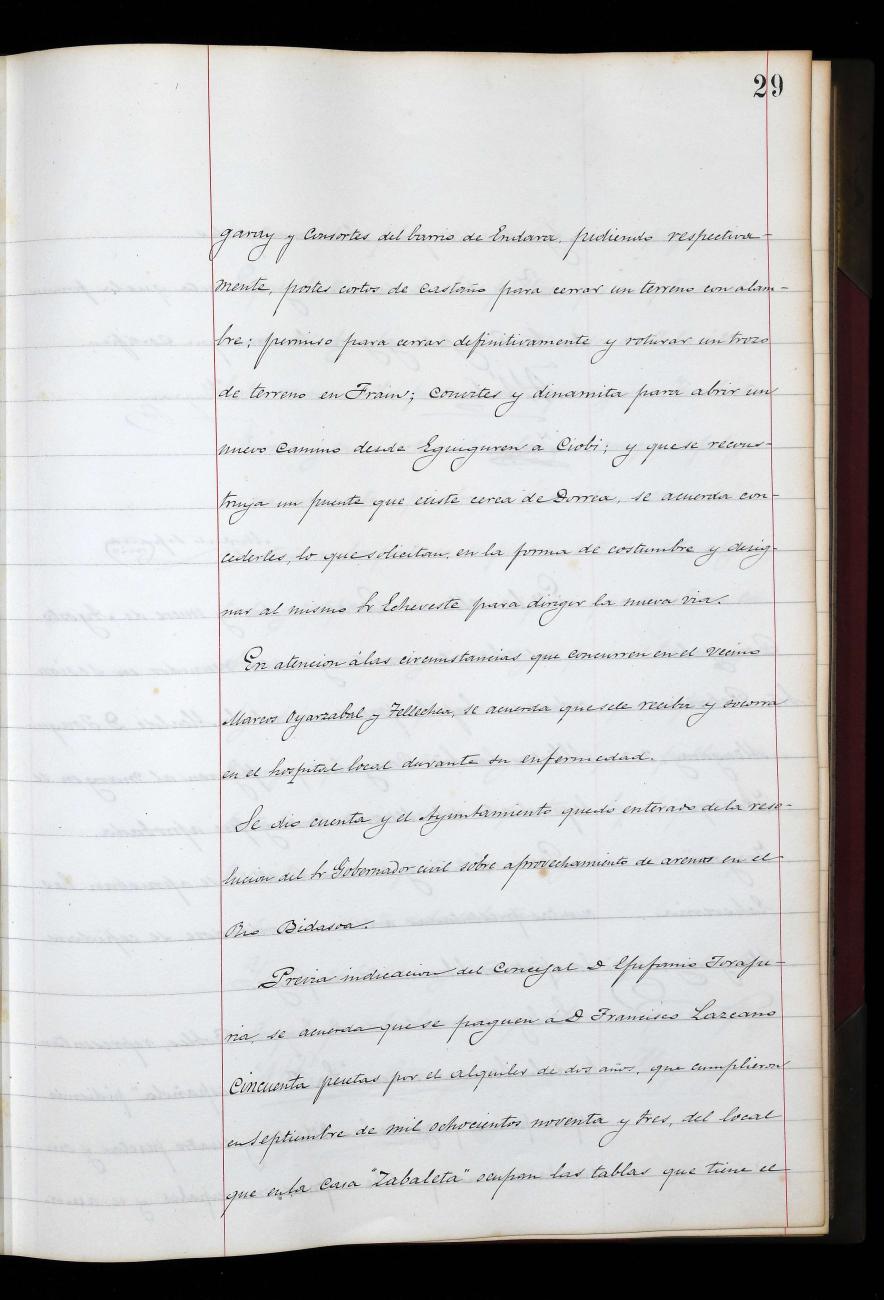 29
garay y Consortes del barrio de Endara, pidiendo respectiva-
mente, postes cortos de castaño para cerrar un terreno con alam-
bre; permiso para cerrar definitivamente y roturar un trozo
de terreno en Frain; convites y dinamita para abrir un
nuevo camino desde Eguiguren a Ciobi; y que se recons-
truya un puente que existe cerca de Dorrea, se acuerda con-
cederles, lo que solicitan, en la forma de costumbre y desig-
nar al mismo Sr Echeveste para dirigir la nueva via.
En atencion á las circunstancias que concurren en el vecino
Marcos Oyarzabal y Tellechea, se acuerda que se le reciba y socorra
en el hospital local durante su enfermedad.
Se dio cuenta y el Ayuntamiento quedo enterado de la reso-
lucion del Sr Gobernador civil sobre aprovechamiento de arenas en el
Rio Bidasoa.
Previa indicacion del Concejal D Epifanio
se acuerda que se paguen á D Francisco Lazcano
Cincuenta pesetas por el alquiler de dos años, que cumplieron
en septiembre de mil ochocientos noventa y tres, del local
que en la Casa "Zabaleta" ocupan las tablas que tiene el